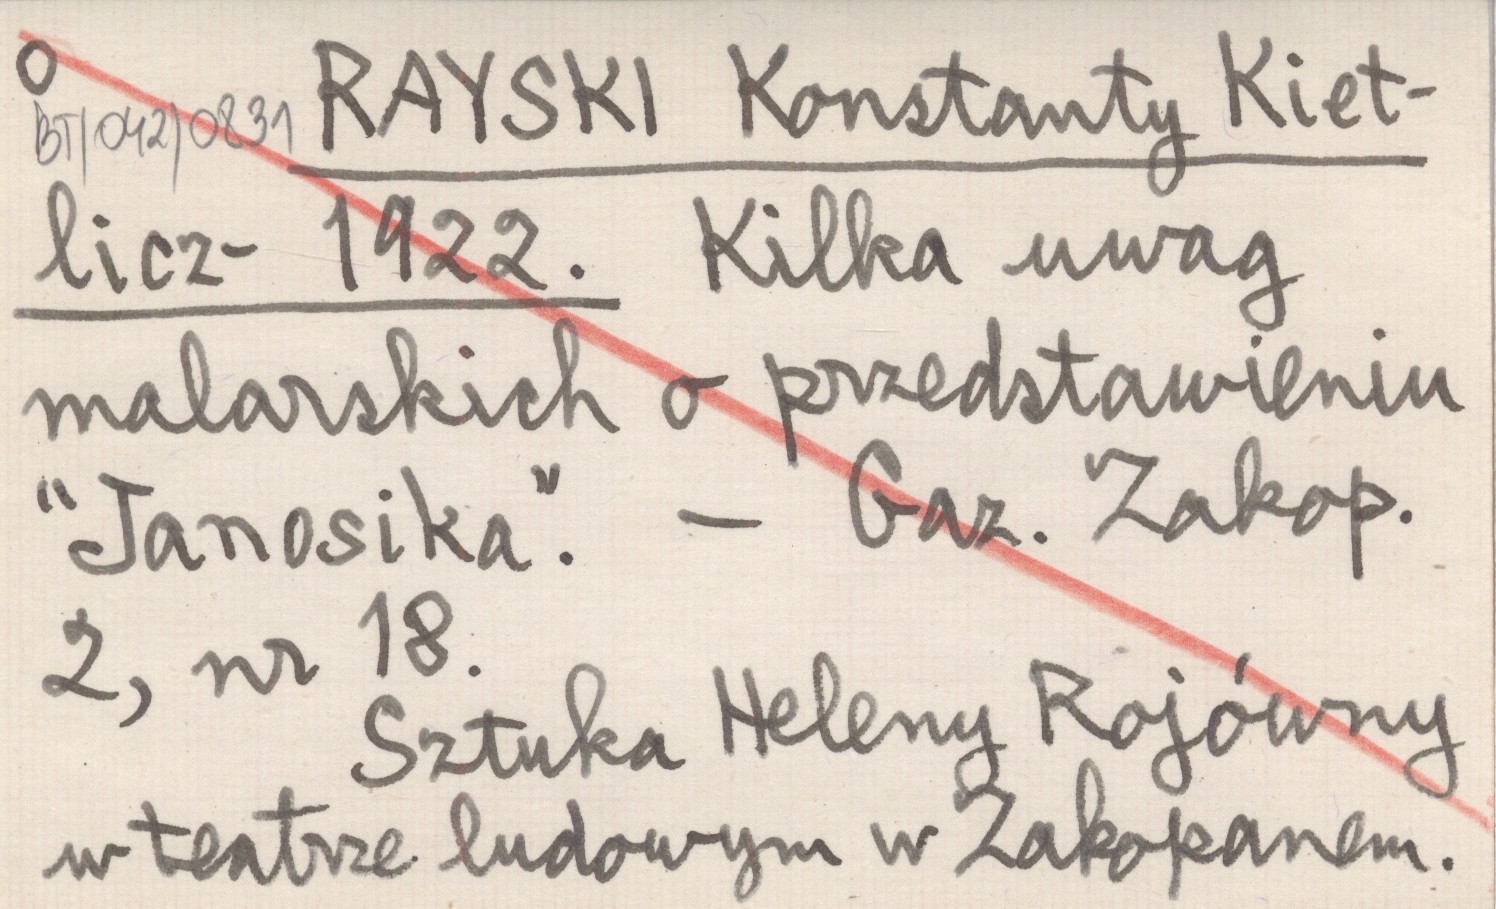 o
BT/042/0831
RAYSKI Konstanty Kiet-
licz- 1922. Kilka uwag
malarskich o przedstawieniu
"Janosika". — Gaz. Zakop.
2, nr 18.
Sztuka Heleny Rojówny
w teatrze ludowym w Zakopanem.